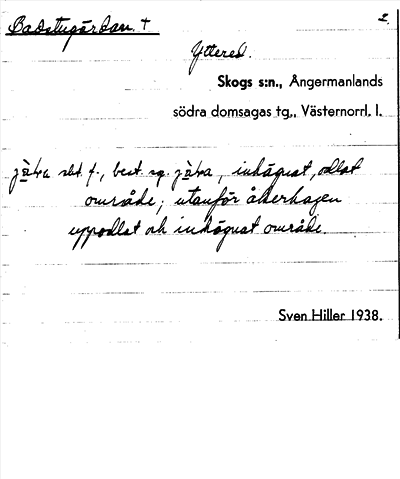 Badstugårdan. + 2.
Yttered.
Skogs s:n., Ångermanlands
södra domsagas tg., Västernorrl. l.
sbt. f., best. sg. , inhägnat, odlat
område; utanför åkerhagen
uppodlat och inhägnat område.
Sven Hiller 1938.